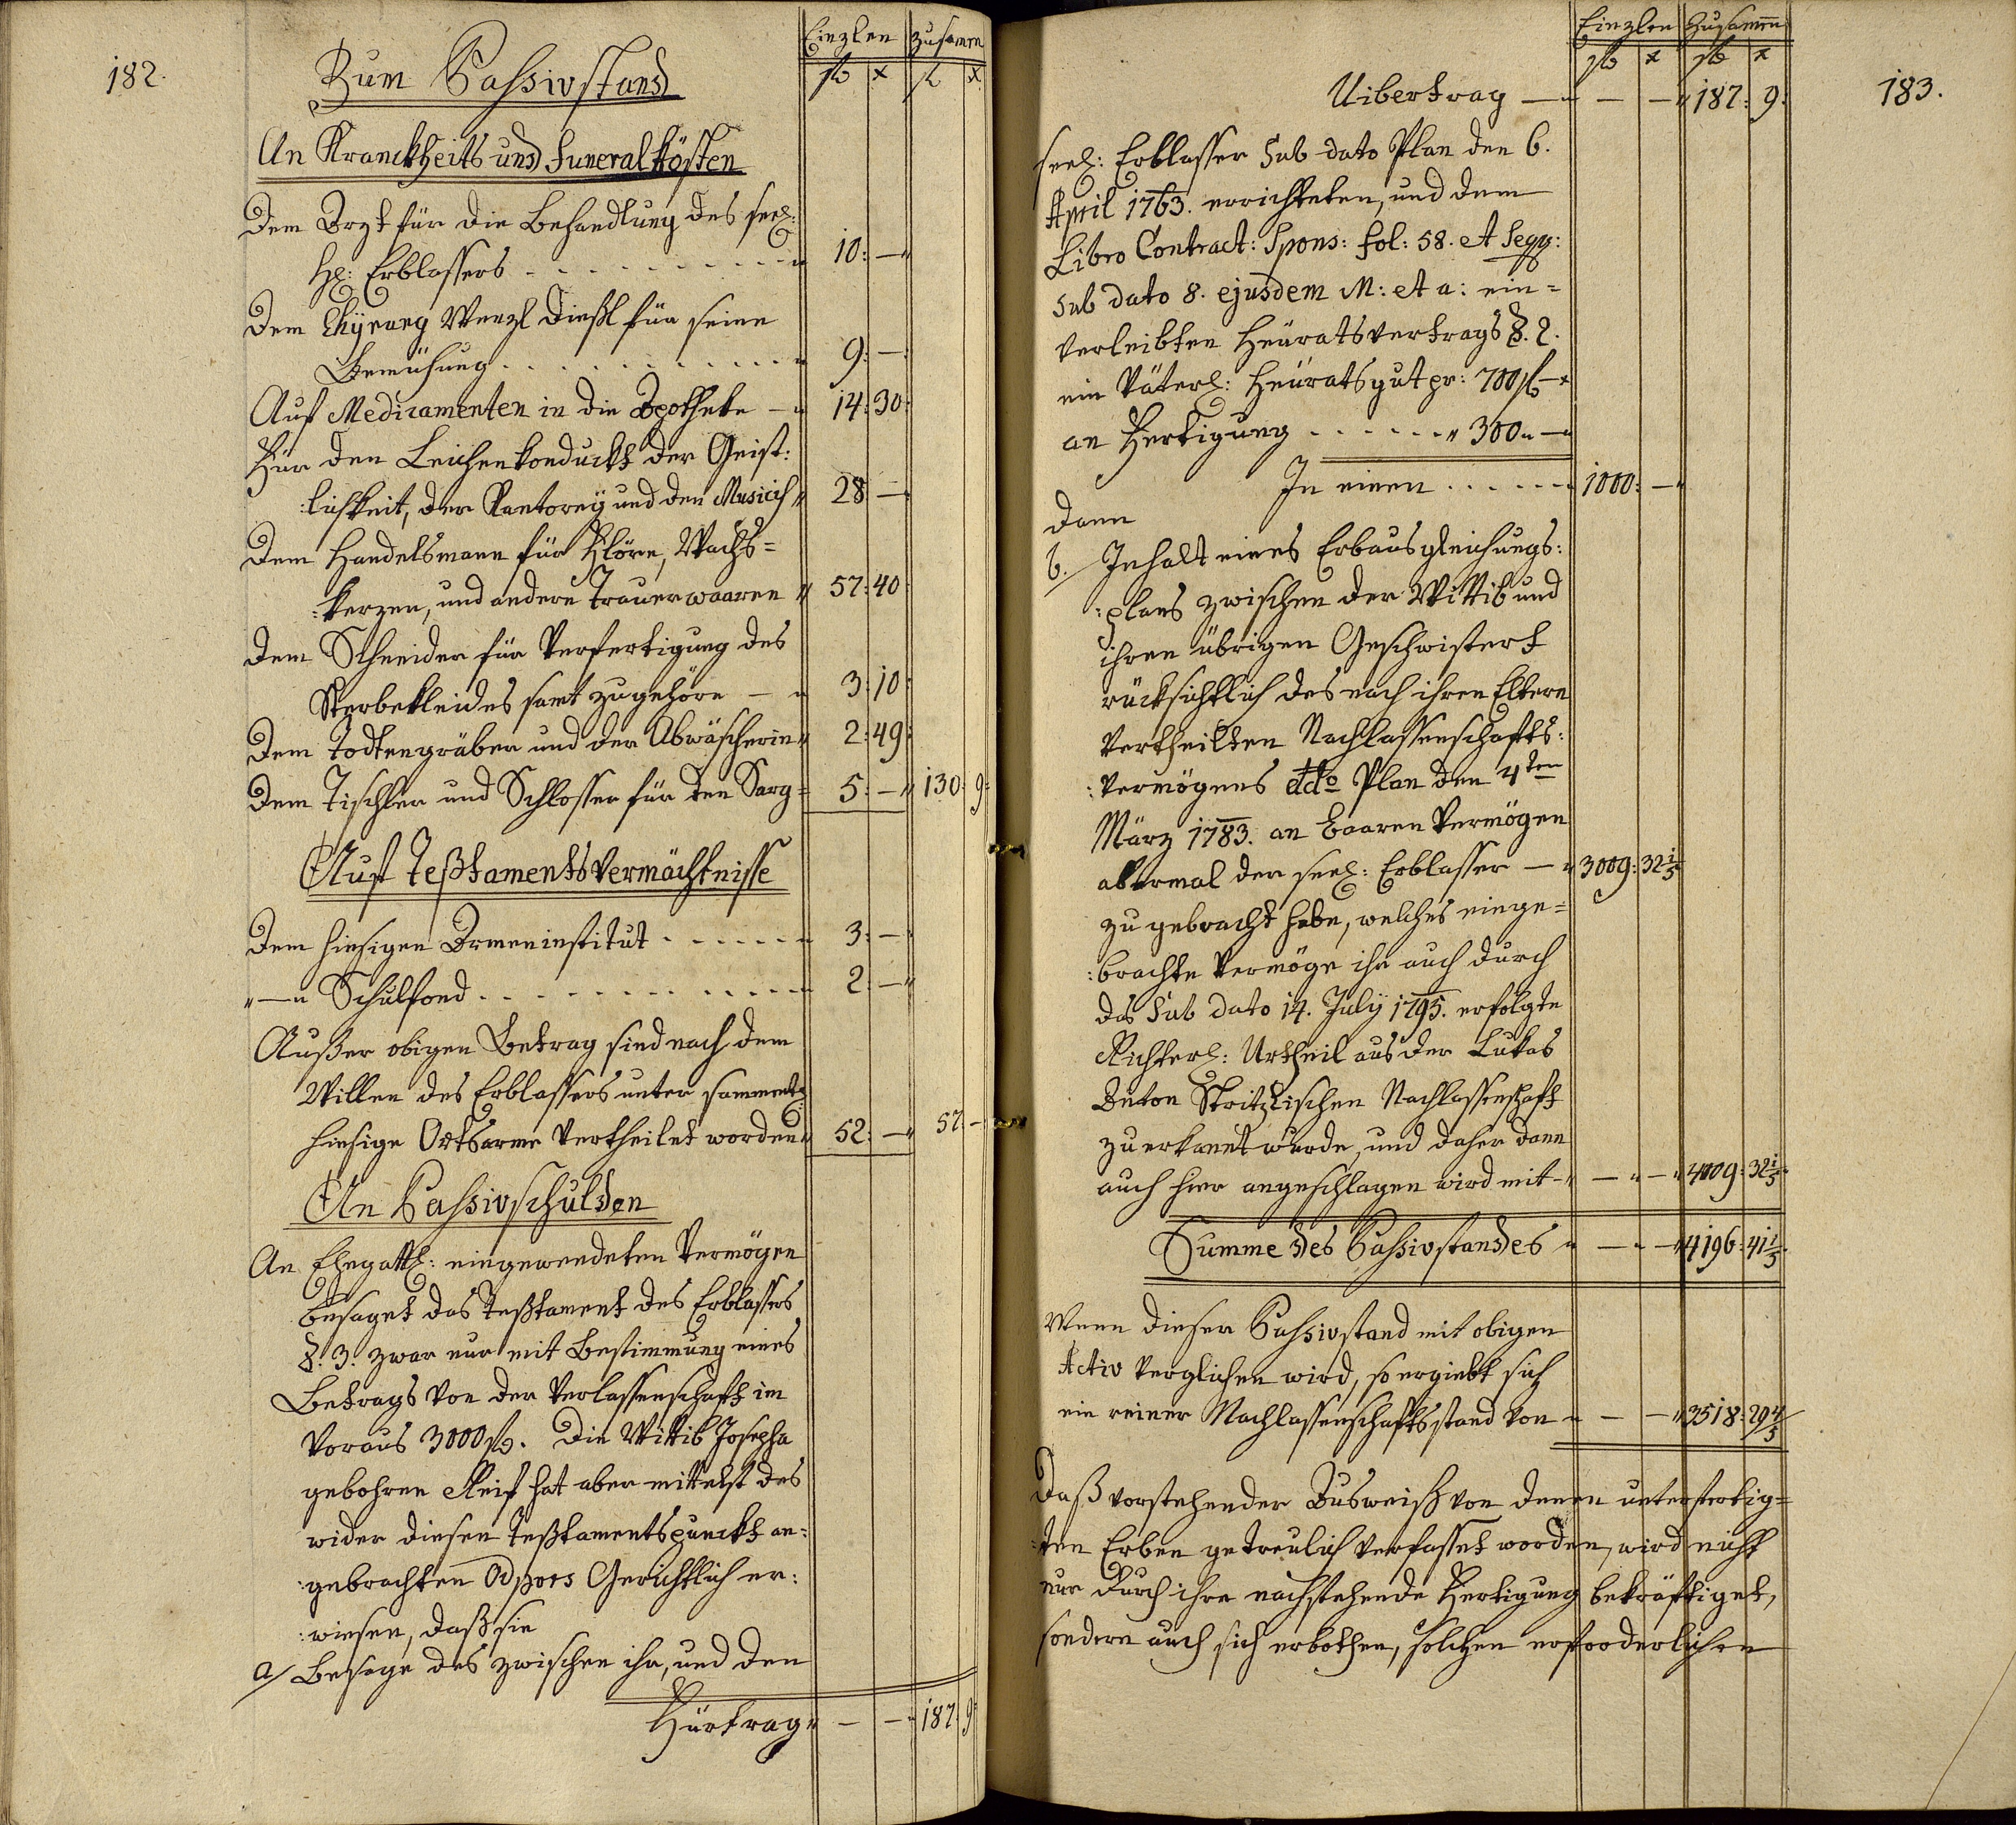 182.
Einzlen zusamen
Zum Passivstand
fl x fl x
An Kranckheits und Funeralkösten
Dem Arzt für die Behandlung des seel:
H: Erblassers - - - - - - - - - - 10: —
Dem Chyrurg Wenzl Dießl für seine
Bemühung. - - - - - - - - - 9: —
Auf Medicamenten in die Apotheke — 14: 30:
Für den Leichenkonduckt der Geist:
:lichkeit, der Kantorey und den Musicis 28 —
Dem Handelsmann für Flöre, Wachs=
:kerzen, und andere Trauerwaaren 57: 40:
Dem Schneider für Verfertigung des
Sterbekleides samt zugehöre — 3: 10:
Dem Todtengräber und der Abwäscherin 2: 49:
Dem Tischler und Schlosser für den Sarg 5: — 130: 9:
Auf Teßtamentsvermächtnisse
Dem hiesigen Armeninstitut - - - - - - 3: —
"—" Schulfond. - - - - - - - - - 2: —
Außer obigen Betrag sind nach dem
Willen des Erblassers unter sammentl:
hiesige Ortsarme vertheilet worden 52: — 57: —
An Passivschulden
An Ehegattl: eingewendeten Vermögen
besaget das Teßtament des Erblassers
§. 3. zwar nur mit Bestimmung eines
Betrags von der Verlassenschaft im
Voraus 3000 fl. Die Wittib Josepha
gebohrne Reif hat aber mittelst des
wider diesen Teßtamentspunckt an:
:gebrachten Gerichtlich er:
:wiesen, daß sie
a/ Besage des zwischen ihr, und den
Fürtrag " — — 187: 9:
183.
Einzlen Zusamen
fl x fl x
Uibertrag — — — 187: 9:
seel: Erblasser Sub dato Plan den 6.
April 1763. errichteten, und dem
Libro Contract: Spons: fol: 58. et seqq:
sub dato 8. ejusdem M: et a: ein=
verleibten Heuratsvertrags §. 2.
ein Väterl: Heuratsgut pr: 700 fl — x
an Fertigung - - - - - - " 300 " —
In einen - - - - - - 1000: —
dann
b./ Inhalt eines Erbausgleichungs:
:plans zwischen der Wittib und
ihren übrigen Geschwistert
rücksichtlich des nach ihren Eltern
vertheilten Nachlassenschafts:
:vermögens ddo Plan den 4ten
März 1783. an baaren Vermögen
abermal der seel: Erblasser — 3009: 32 1/5
zugebracht habe, welches einge=
:brachte Vermögen ihr auch durch
das Sub dato 14. July 1795. erfolgte
Richterl: Urtheil aus der Lukas
Anton Stritzlischen Nachlassenschaft
zuerkannt wurde, und daher dann
auch hier angeschlagen wird mit — — — 4009: 32 1/5
Summe des Passivstandes — — 4196: 41 1/5
Wenn dieser Passivstand mit obigen
Activ verglichen wird, so ergiebt sich
ein reiner Nachlassenschaftsstand von — — 3518: 29 4/5
Daß vorstehender Ausweiß von denen unterfertig=
:ten Erben getreulich verfasset worden, wird nicht
nur durch ihre nachstehende Fertigung bekräftiget,
sondern auch sich erbothen, solchen erforderlichen